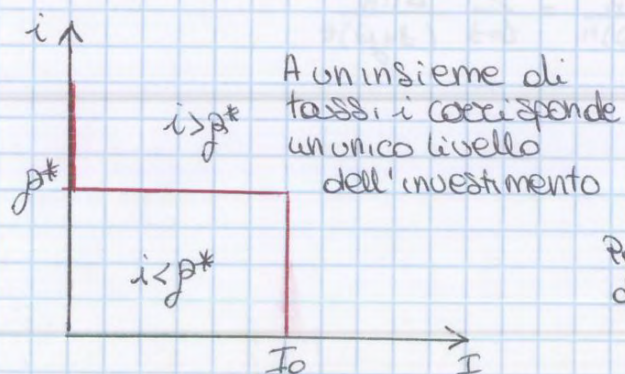 i
A un insieme di
tassi i corrisponde
un unico livello
dell'investimento
i>ρ*
ρ*
i<ρ*
I₀
I